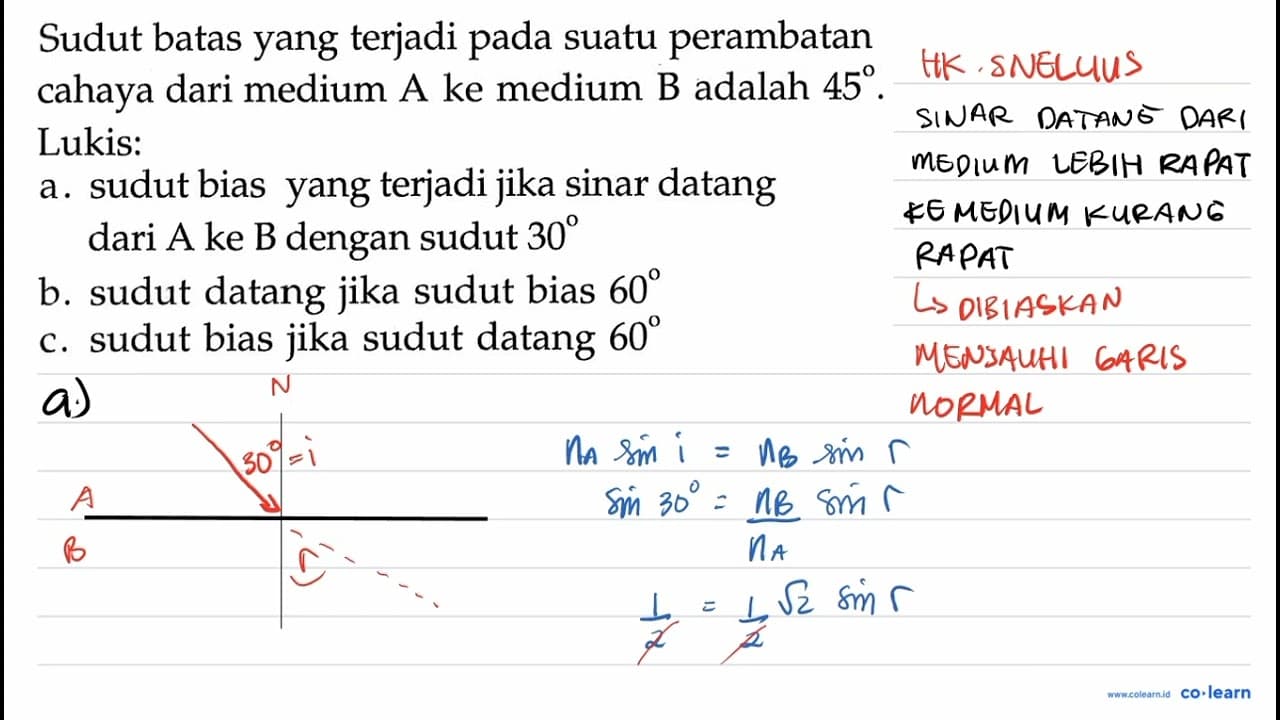 Sudut batas yang terjadi pada suatu perambatan
cahaya dari medium A ke medium B adalah 45°.
Lukis:
a. sudut bias yang terjadi jika sinar datang
dari A ke B dengan sudut 30°
b. sudut datang jika sudut bias 60°
c. sudut bias jika sudut datang 60°
HK. SNELLIUS
SINAR DATANG DARI
MEDIUM LEBIH RAPAT
KE MEDIUM KURANG
RAPAT
↳ DIBIASKAN
MENJAUHI GARIS
NORMAL
a.)
N
30° = i
A
B
r
nA sin i = nB sin r
sin 30° = nB/nA sin r
1/2 = 1/2 √2 sin r
www.colearn.id co·learn